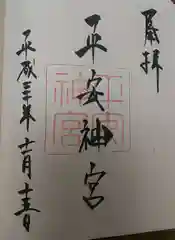 奉拝
平安神宮
平安神宮
平成三十年十一月十一日